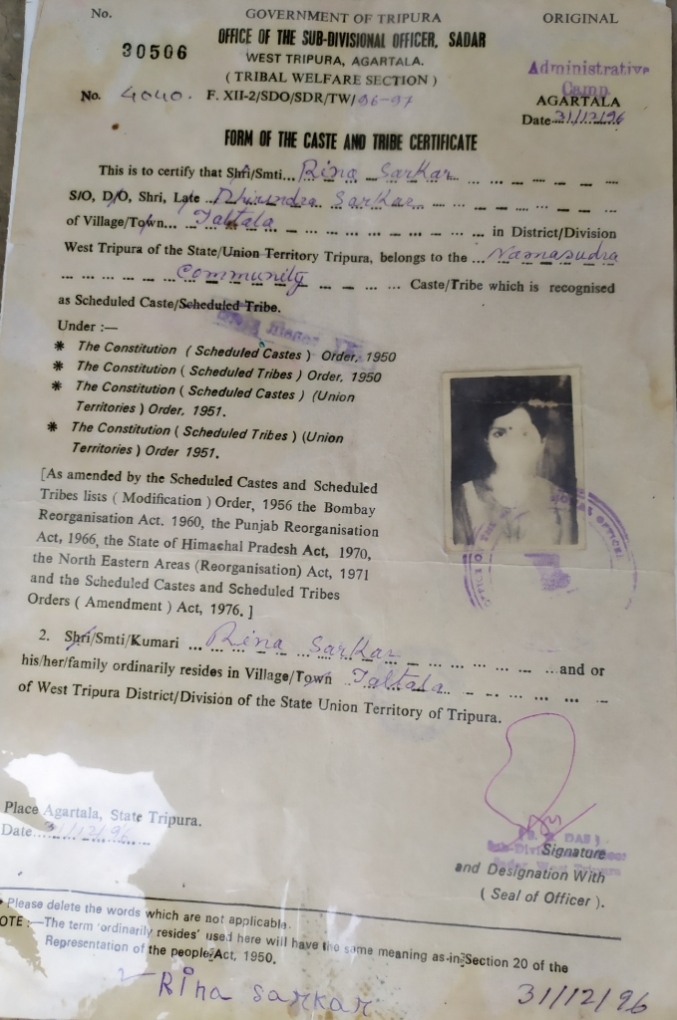 No. GOVERNMENT OF TRIPURA ORIGINAL
30506 OFFICE OF THE SUB-DIVISIONAL OFFICER, SADAR
WEST TRIPURA, AGARTALA.
( TRIBAL WELFARE SECTION )
Administrative
Camp
No. 4040. F. XII-2/SDO/SDR/TW/96-97 AGARTALA
Date 31/12/96
FORM OF THE CASTE AND TRIBE CERTIFICATE
This is to certify that Shri/Smti... Rina Sarkar
S/O, D/O, Shri, Late Dhirendra Sarkar
of Village/Town... Taltala in District/Division
West Tripura of the State/Union Territory Tripura, belongs to the ... Namasudra
Community Caste/Tribe which is recognised
as Scheduled Caste/Scheduled Tribe.
Under :—
* The Constitution ( Scheduled Castes ) Order, 1950
* The Constitution ( Scheduled Tribes ) Order, 1950
* The Constitution ( Scheduled Castes ) (Union
Territories ) Order, 1951.
* The Constitution ( Scheduled Tribes ) (Union
Territories ) Order 1951.
[As amended by the Scheduled Castes and Scheduled
Tribes lists ( Modification ) Order, 1956 the Bombay
Reorganisation Act. 1960, the Punjab Reorganisation
Act, 1966, the State of Himachal Pradesh Act, 1970,
the North Eastern Areas (Reorganisation) Act, 1971
and the Scheduled Castes and Scheduled Tribes
Orders ( Amendment ) Act, 1976. ]
OFFICE OF THE
2. Shri/Smti/Kumari ... Rina Sarkar ...and or
his/her/family ordinarily resides in Village/Town Taltala
of West Tripura District/Division of the State Union Territory of Tripura.
Place Agartala, State Tripura.
Date... 31/12/96
DAS )
Signature
and Designation With
( Seal of Officer ).
* Please delete the words which are not applicable.
OTE :—The term 'ordinarily resides' used here will have the same meaning as in Section 20 of the
Representation of the people Act, 1950.
Rina sarkar 31/12/96